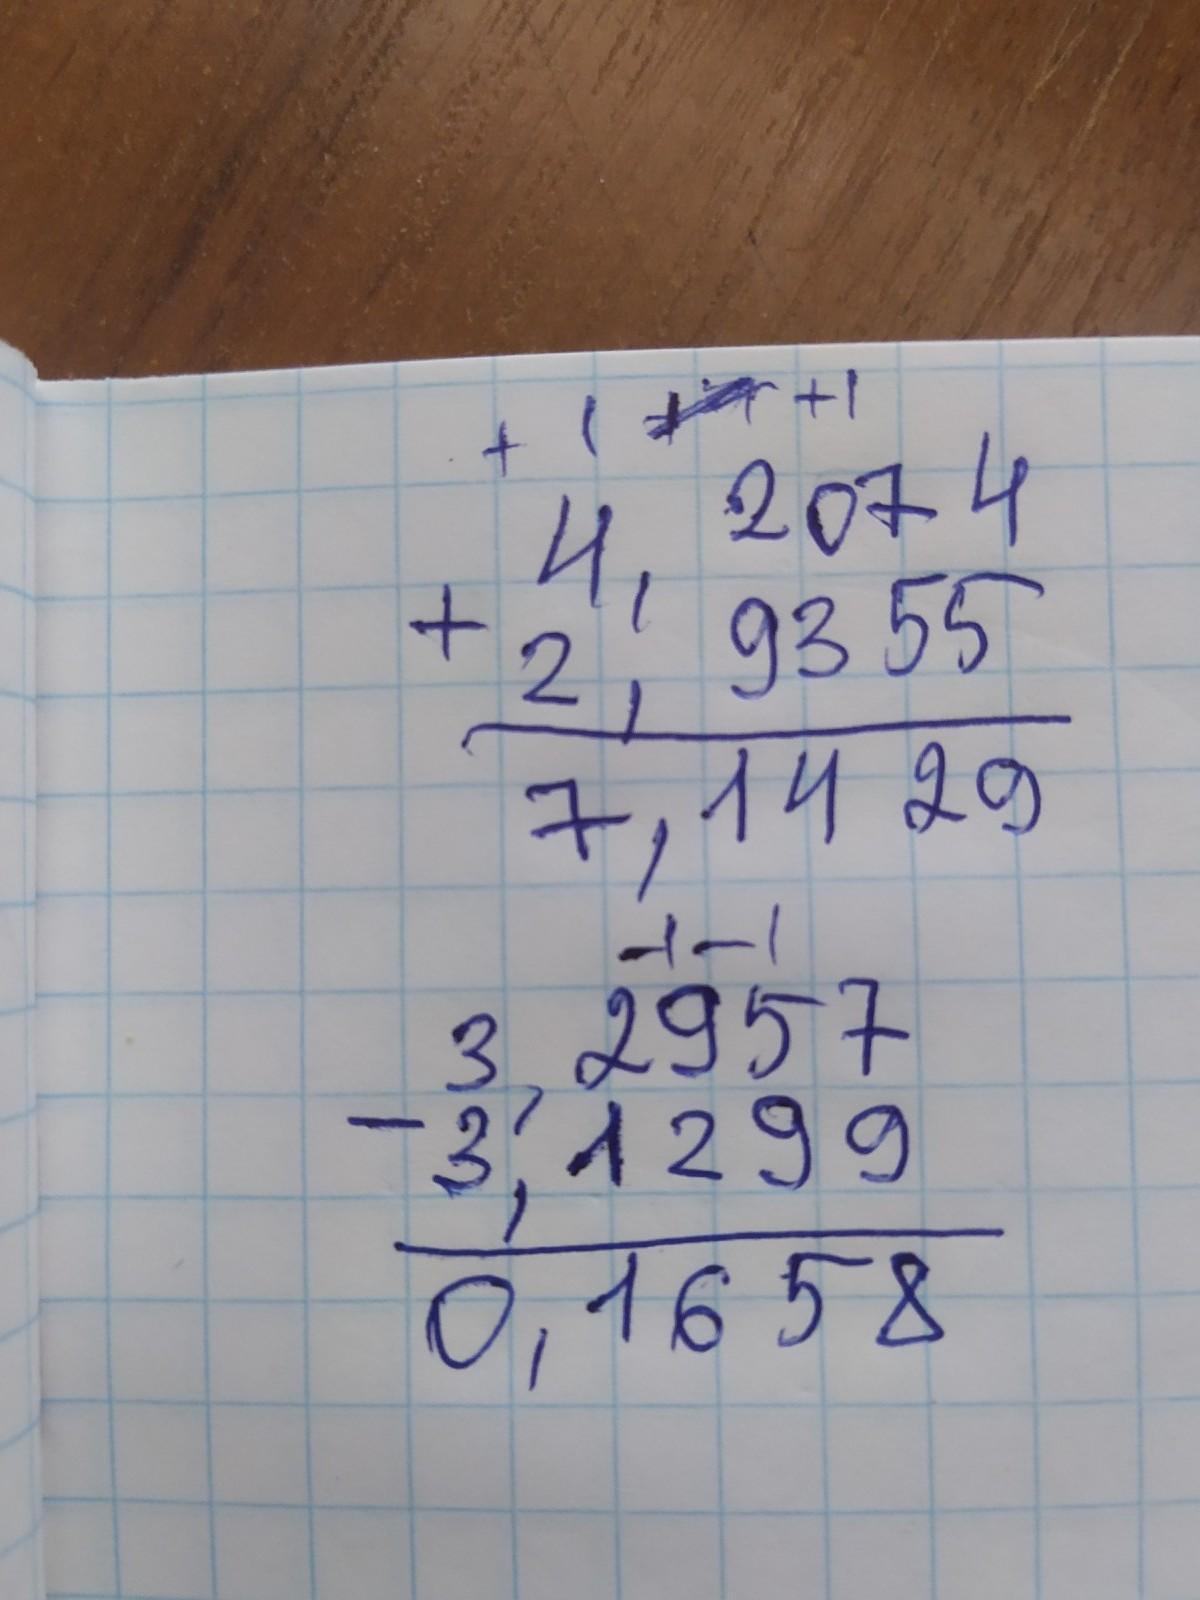 + 1 +1
4, 2074
+ 2, 9355
7, 1429
-1 -1
3, 2957
- 3, 1299
0, 1658